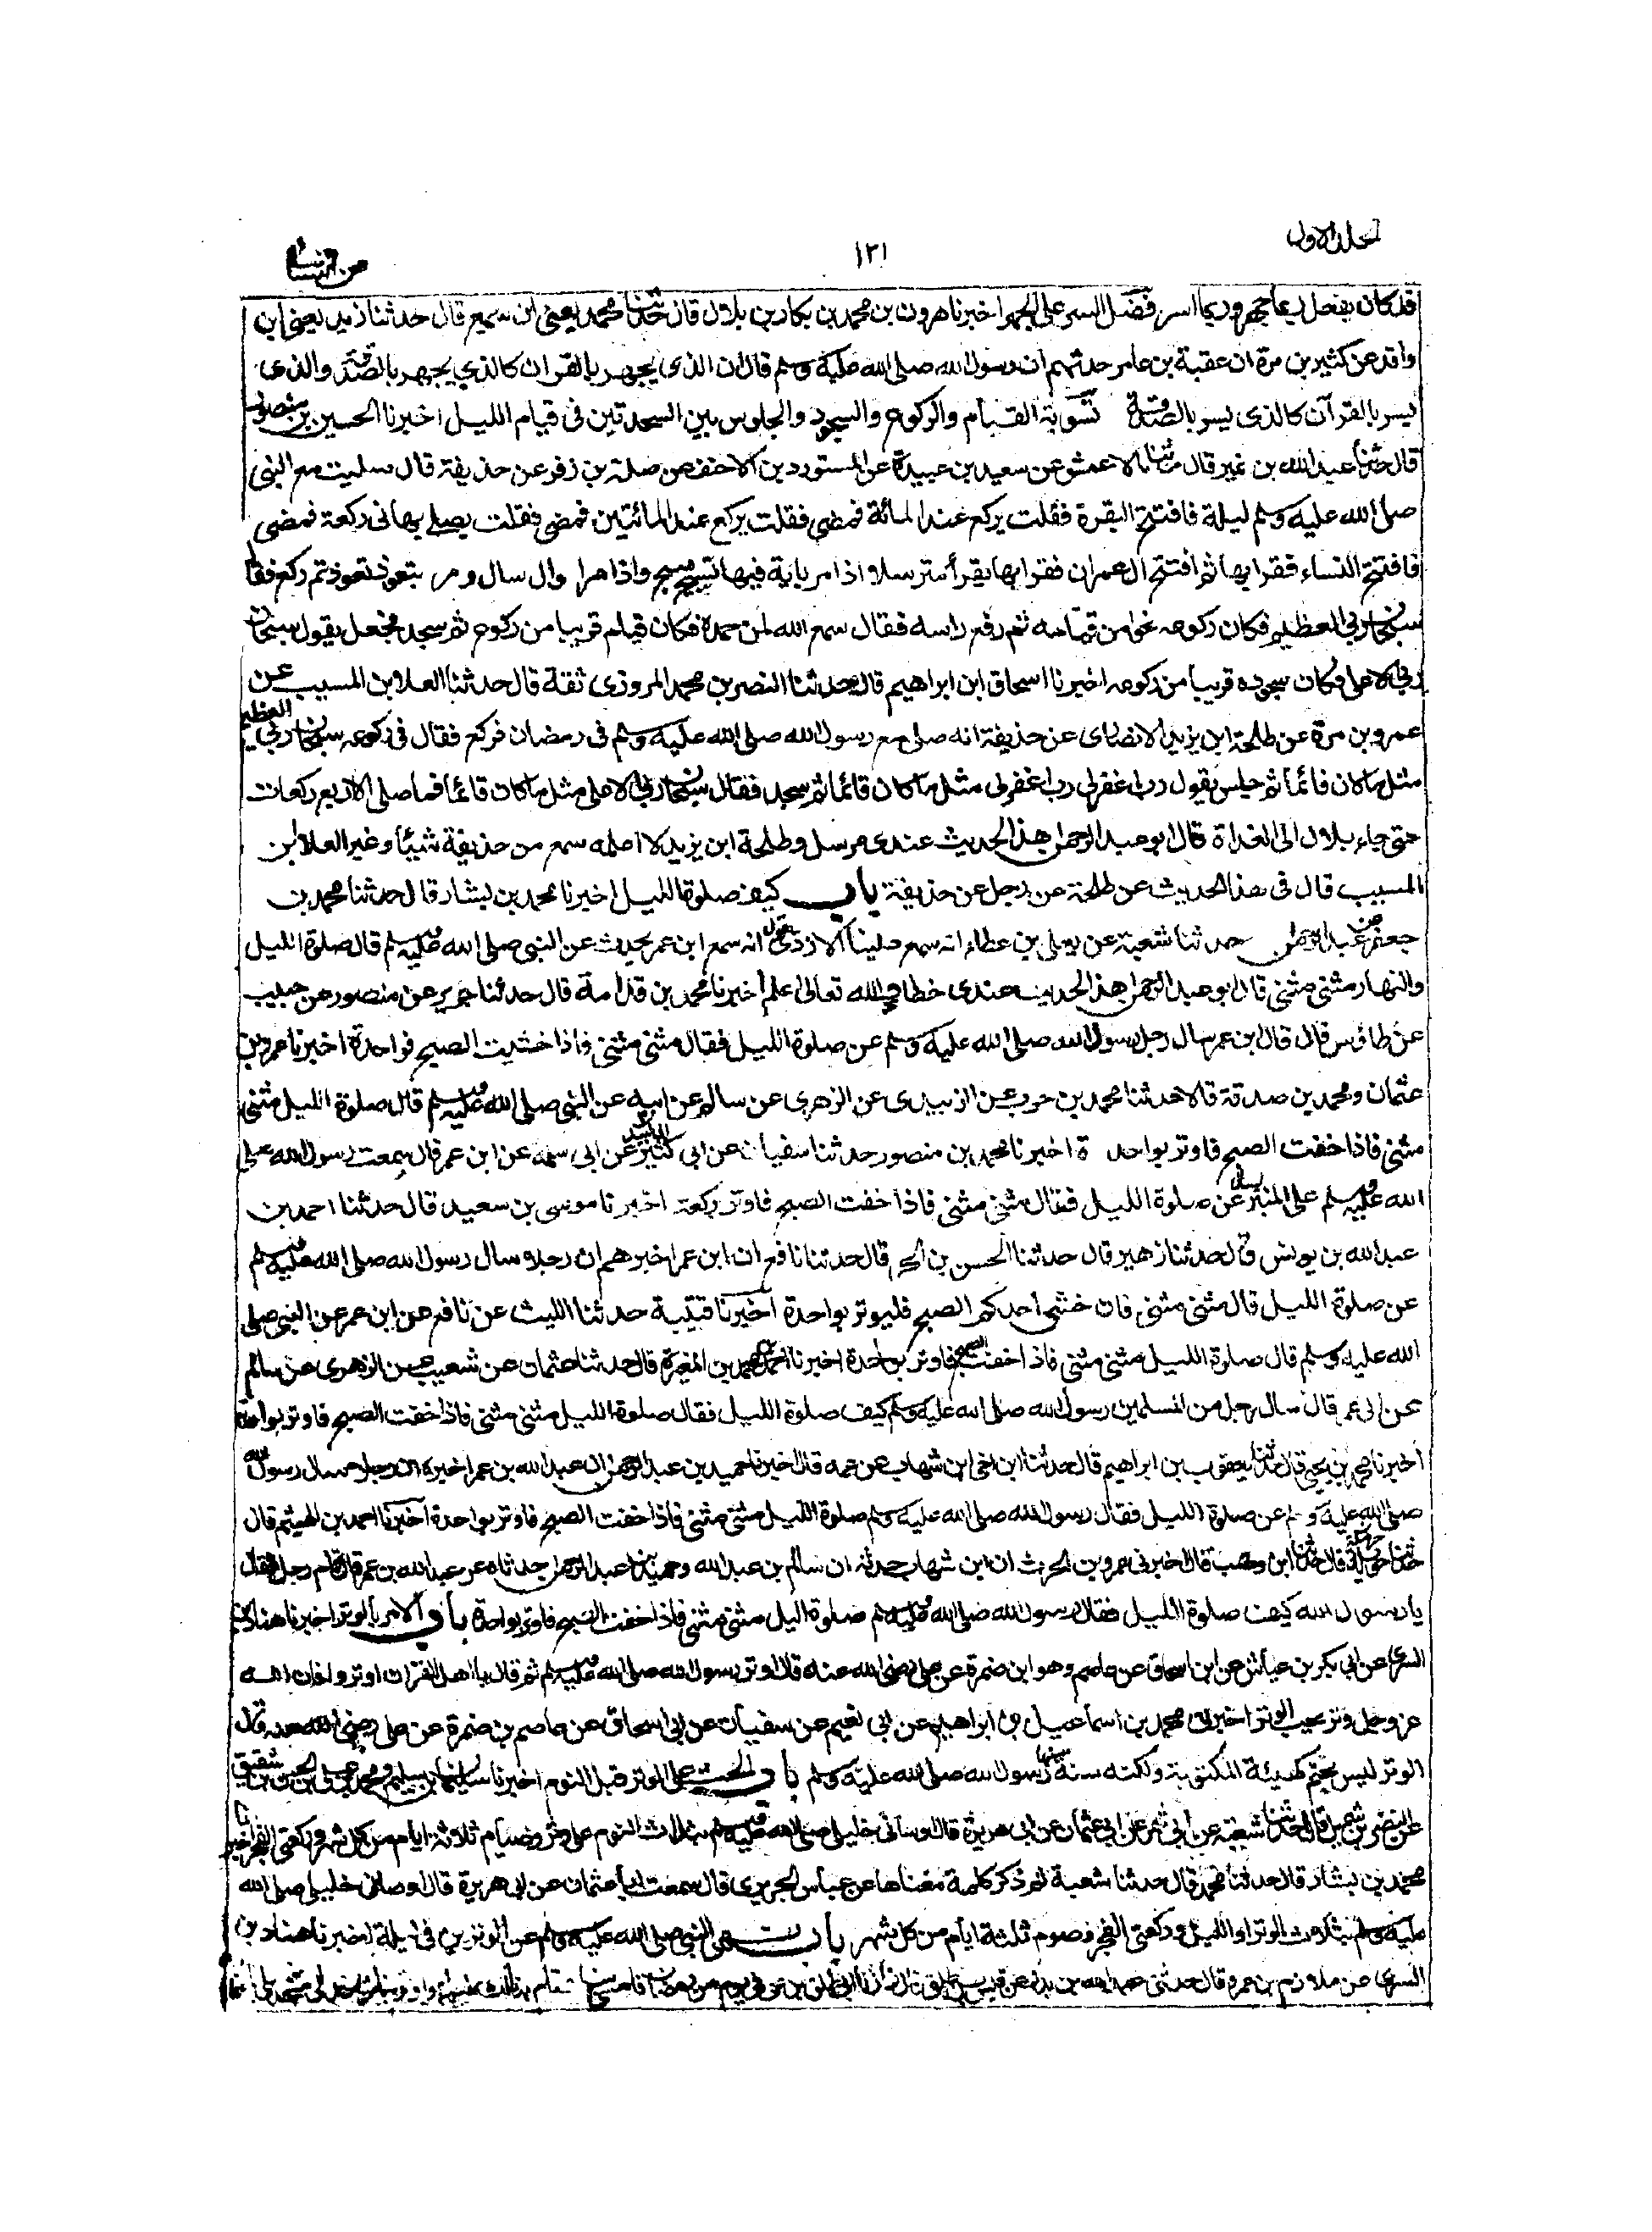 لجلد الاول
١٢١
من النسائى
قد كان يفعل ربما جهر وربما اسر فضل السر على الجهر اخبرنا هرون بن محمد بن بكار بن بلال قال حدثنا محمد يعنى ابن سميع قال حدثنا زيد يعنى ابن
واقد عن كثير بن مرة ان عقبة بن عامر حدثهم ان رسول الله صلى الله عليه وسلم قال ان الذى يجهر بالقران كالذي يجهر بالصدقة والذى
يسر بالقرآن كالذى يسر بالصدقة تسوية القيام والركوع والسجود والجلوس بين السجدتين فى قيام الليل اخبرنا الحسين بن منصور
قال حدثنا عبد الله بن نمير قال حدثنا الاعمش عن سعيد بن عبيدة عن المستورد بن الاحنف عن صلة بن زفر عن حذيفة قال صليت مع النبى
صلى الله عليه وسلم ليلة فافتتح البقرة فقلت يركع عند المائة فمضى فقلت يركع عند المائتين فمضى فقلت يصلى بها فى ركعة فمضى
فافتتح النساء فقرا بها ثم افتتح ال عمران فقرا بها يقرأ مترسلا اذا مر باية فيها تسبيح سبح واذا مر ا وال سال ومر بتعوذ تعوذ ثم ركع فقال
سبحان ربى العظيم فكان ركوعه نحوا من قيامه ثم رفع راسه فقال سمع الله لمن حمده فكان قيامه قريبا من ركوعه ثم سجد فجعل يقول سبحان
ربى الاعلى فكان سجوده قريبا من ركوعه اخبرنا اسحاق ابن ابراهيم قال حدثنا النضر بن محمد المروزى ثقة قال حدثنا العلا بن المسيب عن
عمرو بن مرة عن طلحة ابن يزيد الانصارى عن حذيفة انه صلى مع رسول الله صلى الله عليه وسلم فى رمضان فركع فقال فى ركوعه سبحان ربي العظيم
مثل ما كان قائما ثم جلس يقول رب اغفر لى رب اغفر لى مثل ما كان قائما ثم سجد فقال سبحان ربى الاعلى مثل ما كان قائما فما صلى الا اربع ركعات
حتى جاء بلال الى الغداة قال ابو عبد الرحمن هذا الحديث عندى مرسل وطلحة ابن يزيد لا اعلمه سمع من حذيفة شيئا وغير العلا بن
المسيب قال فى هذا الحديث عن طلحة عن رجل عن حذيفة باب كيف صلوة الليل اخبرنا محمد بن بشار قال حدثنا محمد بن
جعفر وعبد الرحمن حدثنا شعبة عن يعلى بن عطاء انه سمع عليا الازدى يقول انه سمع ابن عمر يحدث عن النبى صلى الله عليه وسلم قال صلوة الليل
والنهار مثنى مثنى قال ابو عبد الرحمن هذا الحديث عندى خطا والله تعالى اعلم اخبرنا محمد بن قدامة قال حدثنا جرير عن منصور عن حبيب
عن طاؤس قال قال ابن عمر سال رجل رسول الله صلى الله عليه وسلم عن صلوة الليل فقال مثنى مثنى فاذا خشيت الصبح فواحدة اخبرنا عمرو بن
عثمان ومحمد بن صدقة قالا حدثنا محمد بن حرب عن الزبيدى عن الزهرى عن سالم عن ابيه عن النبى صلى الله عليه وسلم قال صلوة الليل مثنى
مثنى فاذا خفت الصبح فاوتر بواحد ة اخبرنا محمد بن منصور حدثنا سفيان عن ابى كثير عن ابى سلمة عن ابن عمر قال سمعت رسول الله صلى
الله عليه وسلم على المنبر يسال عن صلوة الليل فقال مثنى مثنى فاذا خفت الصبح فاوتر بركعة اخبرنا موسى بن سعيد قال حدثنا احمد بن
عبد الله بن يونس قال حدثنا زهير قال حدثنا الحسن بن الحر قال حدثنا نافع ان ابن عمر اخبرهم ان رجلا سال رسول الله صلى الله عليه وسلم
عن صلوة الليل قال مثنى مثنى فان خشى احدكم الصبح فليوتر بواحدة اخبرنا قتيبة حدثنا الليث عن نافع عن ابن عمر عن النبى صلى
الله عليه وسلم قال صلوة الليل مثنى مثنى فاذا خفت الصبح فاوتر بواحدة اخبرنا احمد بن محمد بن المغيرة قال حدثنا عثمان عن شعيب عن الزهرى عن سالم
عن ابن عمر قال سال رجل من المسلمين رسول الله صلى الله عليه وسلم كيف صلوة الليل فقال صلوة الليل مثنى مثنى فاذا خفت الصبح فاوتر بواحدة
اخبرنا محمد بن يحيى قال حدثنا يعقوب بن ابراهيم قال حدثنا ابن اخى ابن شهاب عن عمه قال اخبرنا حميد بن عبد الرحمن ان عبد الله بن عمر اخبره ان رجلا سال رسول الله
صلى الله عليه وسلم عن صلوة الليل فقال رسول الله صلى الله عليه وسلم صلوة الليل مثنى مثنى فاذا خفت الصبح فاوتر بواحدة اخبرنا احمد بن الهيثم قال
حدثنا حرملة قال حدثنا ابن وهب قال اخبرنى عمرو بن الحرث ان ابن شهاب حدثه ان سالم بن عبد الله وحميد بن عبد الرحمن حدثاه عن عبد الله بن عمر قال قام رجل فقال
يا رسول الله كيف صلوة الليل فقال رسول الله صلى الله عليه وسلم صلوة اليل مثنى مثنى فاذا خفت الصبح فاوتر بواحدة باب الامر بالوتر اخبرنا هناد بن
السرى عن ابى بكر بن عياش عن ابى اسحاق عن عاصم وهو ابن ضمرة عن على رضى الله عنه قال اوتر رسول الله صلى الله عليه وسلم ثم قال يا اهل القران اوتروا فان الله
عز وجل وتر يحب الوتر اخبرنى محمد بن اسماعيل بن ابراهيم عن ابى نعيم عن سفيان عن ابى اسحاق عن عاصم بن ضمرة عن على رضى الله عنه قال
الوتر ليس بحتم كهيئة المكتوبة ولكنه سنة سنها رسول الله صلى الله عليه وسلم باب الحث على الوتر قبل النوم اخبرنا سليمان بن سليم ومحمد بن على بن الحسن بن شقيق
عن النضر بن شميل قال حدثنا شعبة عن ابى شمر عن ابى عثمان عن ابى هريرة قال اوصانى خليلى صلى الله عليه وسلم بثلاث النوم على وتر وصيام ثلاثة ايام من كل شهر وركعتى الفجر اخبرنا
محمد بن بشار قال حدثنا محمد قال حدثنا شعبة ثم ذكر كلمة معناها عن عباس الجريرى قال سمعت ابا عثمان عن ابى هريرة قال اوصانى خليلى صلى الله
عليه وسلم بثلاث الوتر اول الليل وركعتى الفجر وصوم ثلثة ايام من كل شهر باب نهى النبى صلى الله عليه وسلم عن الوترين فى ليلة اخبرنا هناد بن
السرى عن ملازم بن عمرو قال حدثنى عبد الله بن بدر عن قيس بن طلق قال زارنا ابى طلق بن على فى يوم من رمضان فامسى بنا